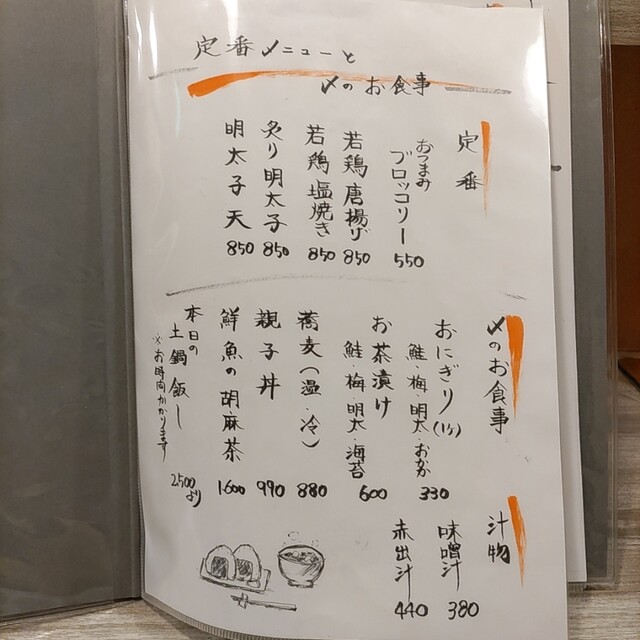 定番メニューと
〆のお食事
定番
おつまみ
ブロッコリー 550
若鶏唐揚げ 850
若鶏塩焼き 850
炙り明太子 850
明太子天 850
〆のお食事
おにぎり(1ケ) 330
鮭・梅・明太・おかか
お茶漬け 600
鮭・梅・明太・海苔
蕎麦(温・冷) 880
親子丼 990
鮮魚の胡麻茶 1600
本日の
土鍋飯し 2,500より
※お時間かかります
汁物
味噌汁 380
赤出汁 440